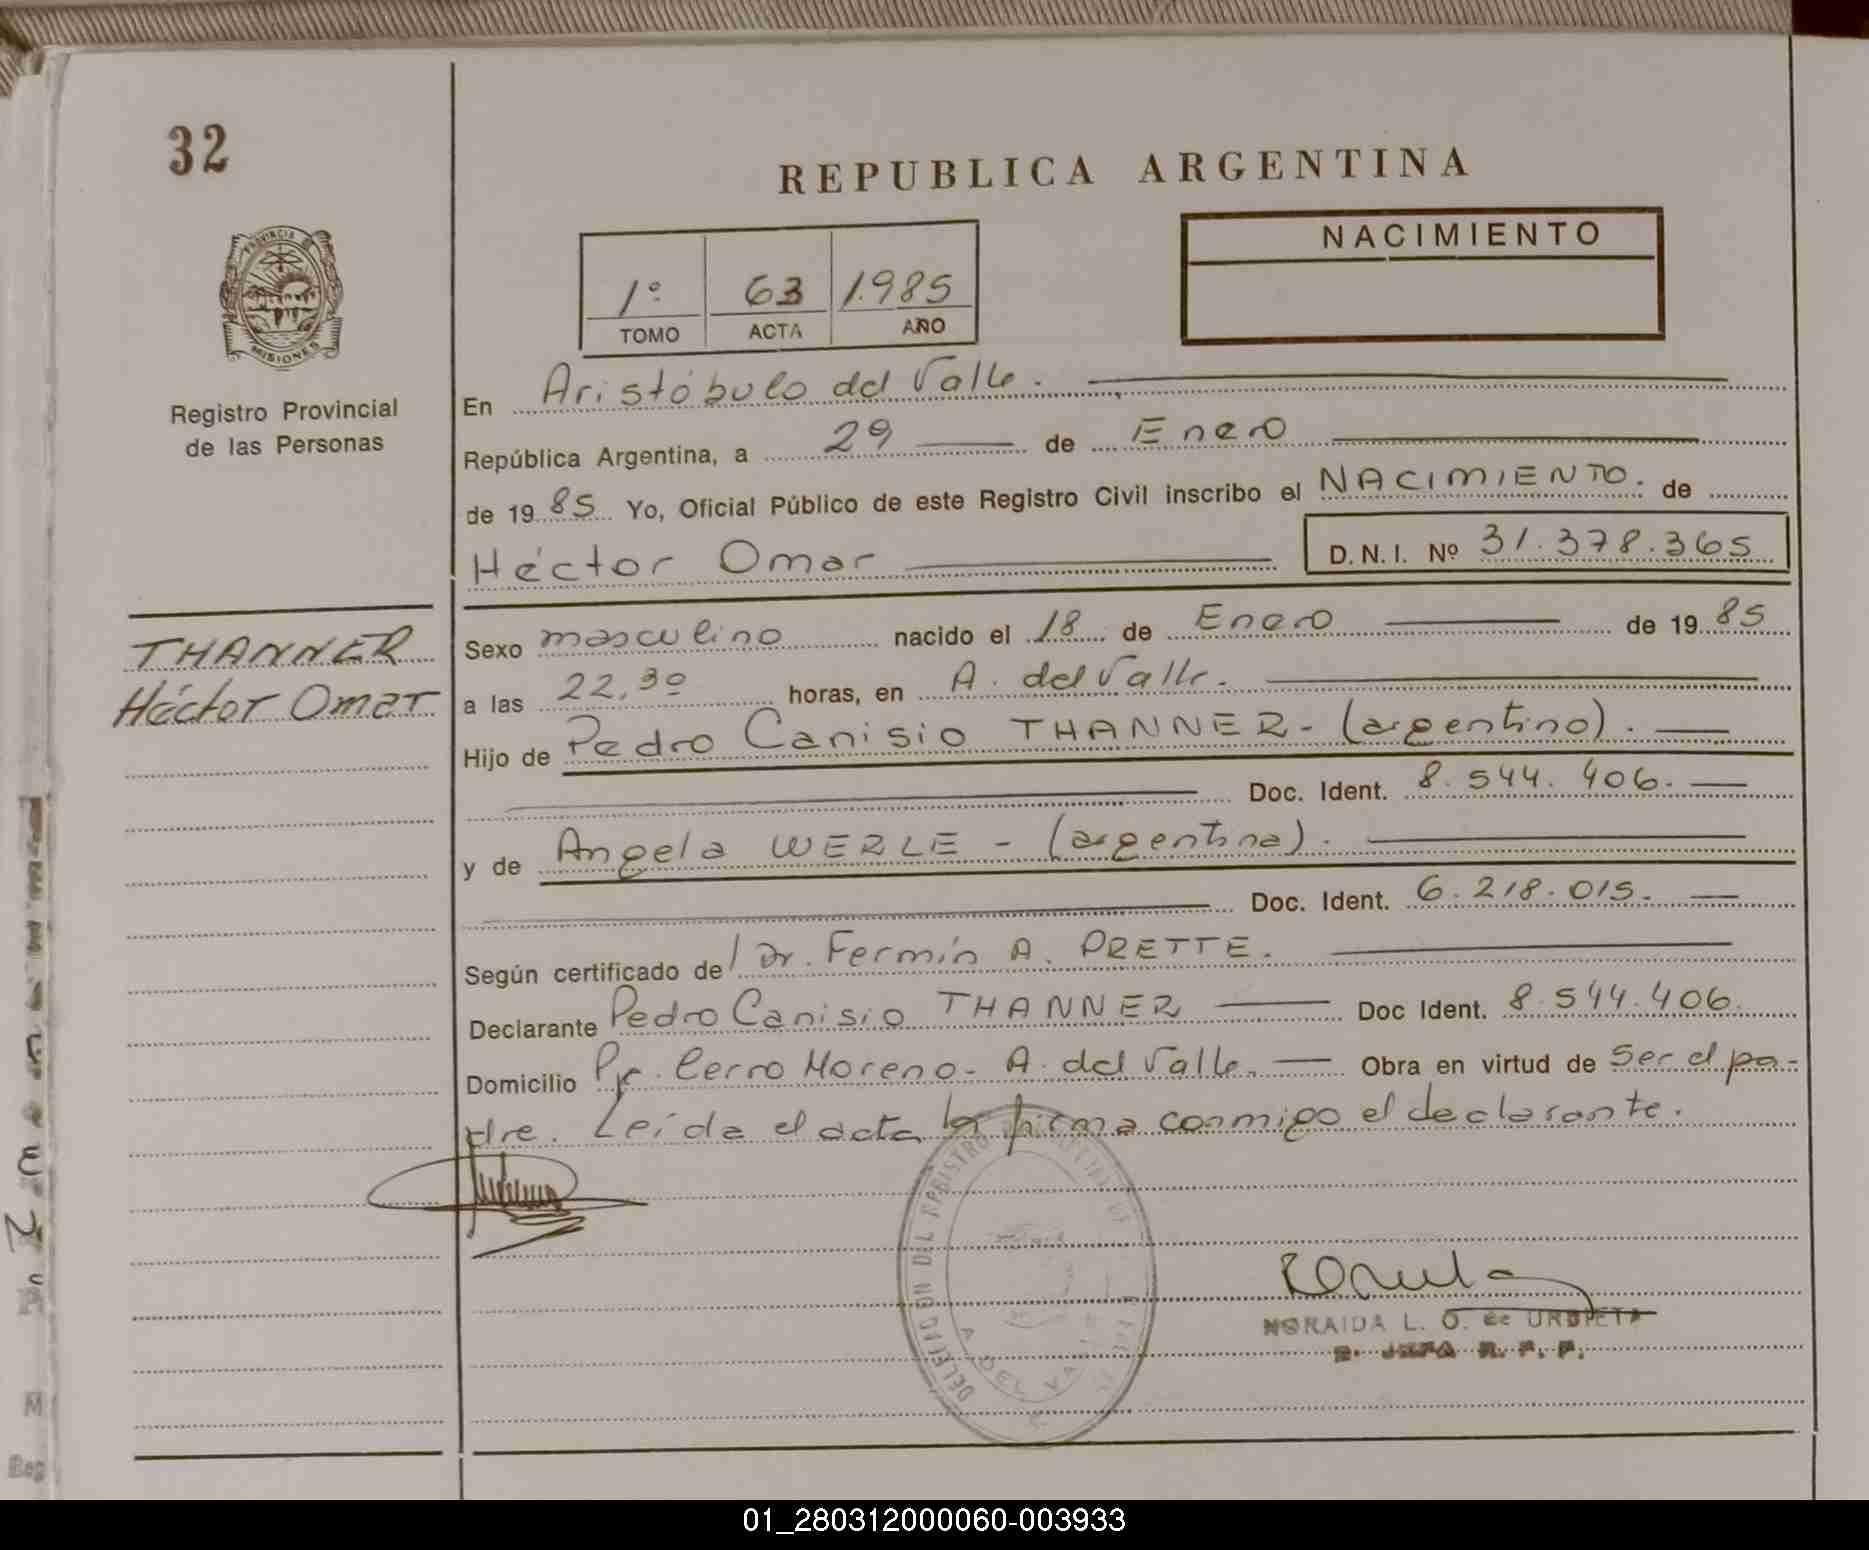 32
REPUBLICA ARGENTINA
PROVINCIA DE
MISIONES
Registro Provincial
de las Personas
1º 63 1.985
TOMO ACTA AÑO
NACIMIENTO
En Aristóbulo del Valle.
República Argentina, a 29 de Enero
de 19 85 Yo, Oficial Público de este Registro Civil inscribo el NACIMIENTO. de
Héctor Omar D.N.I. Nº 31.378.365
THANNER
Héctor Omar
Sexo masculino nacido el 18 de Enero de 19 85
a las 22,30 horas, en A. del Valle.
Hijo de Pedro Canisio THANNER - (argentino).
Doc. Ident. 8.544.406.
y de Angela WERLE - (argentina).
Doc. Ident. 6.218.015.
Según certificado de Dr. Fermín A. PRETTE.
Declarante Pedro Canisio THANNER Doc Ident. 8.544.406.
Domicilio Pje. Cerro Moreno - A. del Valle. Obra en virtud de Ser el pa-
dre. Leída el acta la firma conmigo el declarante.
DELEGACION DEL REGISTRO PROVINCIAL DE
A. DEL VALLE
NORAIDA L. O. de URBIETA
JEFA R. P. P.
01_280312000060-003933